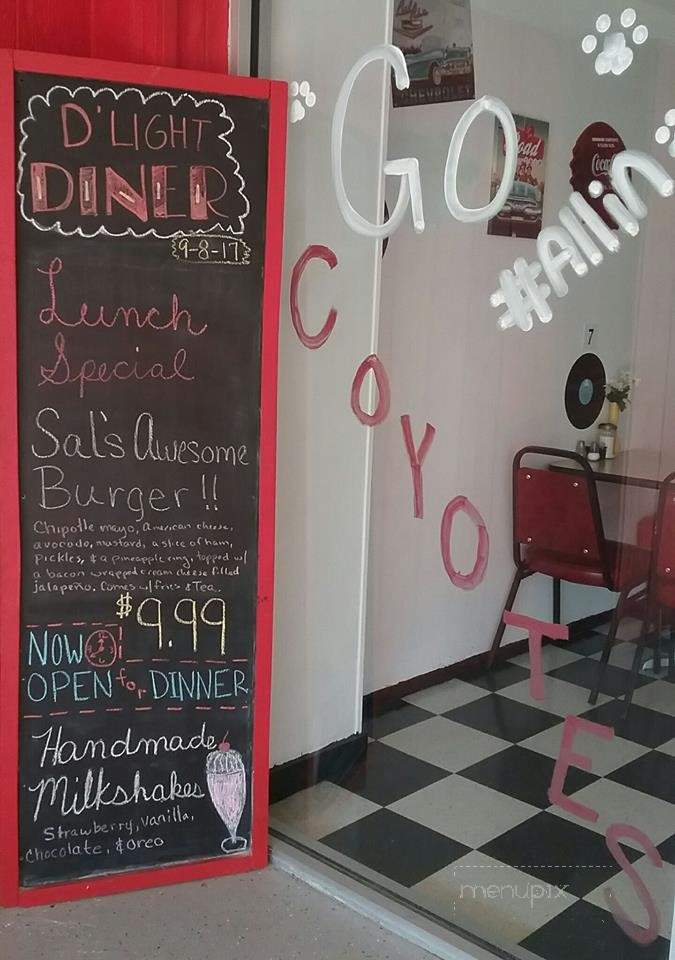 D'LIGHT
DINER
9-8-17
Lunch
Special
Sal's Awesome
Burger!!
Chipotle mayo, american cheese,
avocado, mustard, a slice of ham,
Pickles, & a pineapple ring, topped w/
a bacon wrapped cream cheese filled
jalapeño. Comes w/ fries & Tea.
$9.99
NOW
OPEN for DINNER
Handmade
Milkshakes
Strawberry, Vanilla,
Chocolate, & Oreo
GO
#Allin
COYOTES
CHEVROLET
Road
Coca-Cola
7
menupix